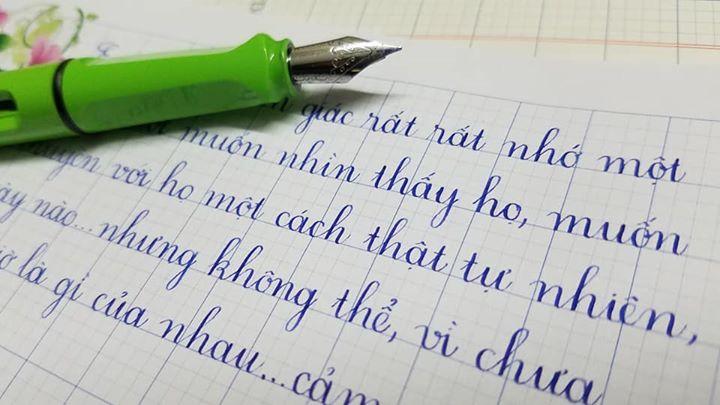 giác rất rất nhớ một
muốn nhìn thấy họ, muốn
với họ một cách thật tự nhiên,
nào... nhưng không thể, vì chưa
là gì của nhau... cảm